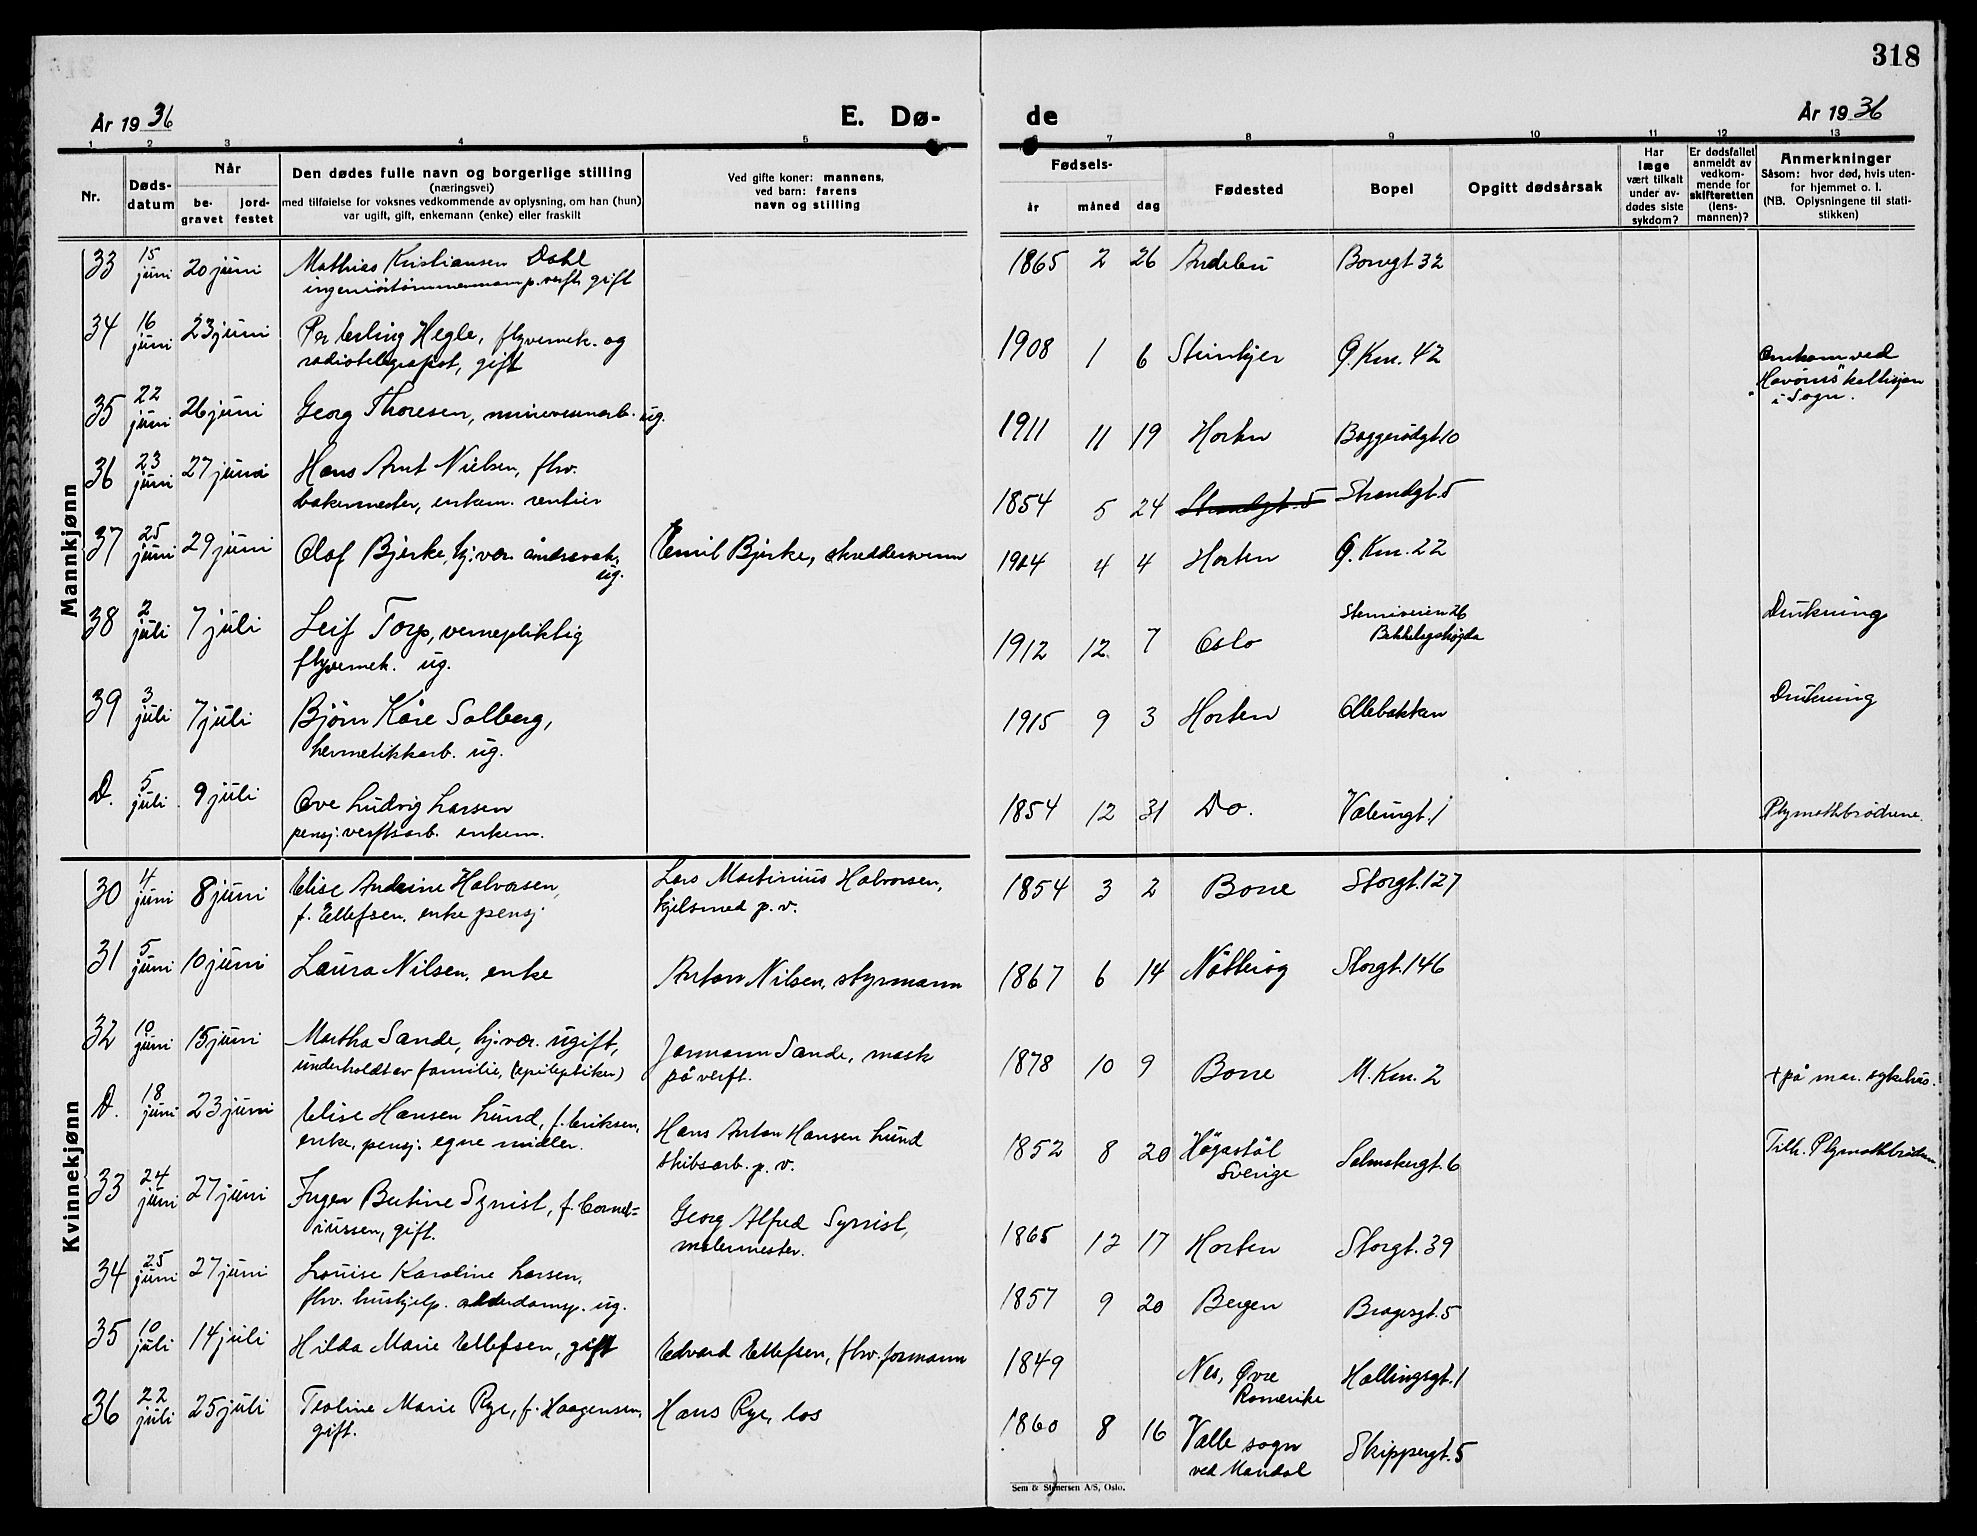 318
År 19 36
E. Dø-
de
År 19 36
1 2 3 4 5 6 7 8 9 10 11 12 13
Nr.
Døds-
datum
Når
be-
gravet
jord-
festet
Den dødes fulle navn og borgerlige stilling
(næringsvei)
med tilføielse for voksnes vedkommende av oplysning, om han (hun)
var ugift, gift, enkemann (enke) eller fraskilt
Ved gifte koner: mannens,
ved barn: farens
navn og stilling
Fødsels-
år måned dag
Fødested
Bopel
Opgitt dødsårsak
Har
læge
vært tilkalt
under av-
dødes siste
sykdom?
Er dødsfallet
anmeldt av
vedkom-
mende for
skifteretten
(lens-
mannen)?
Anmerkninger
Såsom: hvor død, hvis uten-
for hjemmet o. l.
(NB. Oplysningene til stati-
stikken)
Mannkjønn
33 15 juni 20 juni Mathias Kristiansen Dahl 1865 2 26 Andebu Borregt 32
p. verft, gift
34 16 juni 23 juni Per Erling Hegle, flyvemek. og 1908 1 6 Steinkjer Ø. Km. 42 Omkom ved
radiotelegrafist, gift
"Havörns" kollisjon
i Sogn.
35 22 juni 26 juni Georg Thoresen, minevesenarb. ug. 1911 11 19 Horten Baggerödgt. 10
36 23 juni 27 juni Hans Arnt Nielsen, fhv. 1854 5 24 Strandgt. 5 Strandgt. 5
bakermester, enkem. rentier
37 25 juni 29 juni Olaf Bjerke, hj. vær. åndssvak, Emil Bjerke, skreddersvenn 1904 4 4 Horten Ø. Km. 22
ug.
38 2 juli 7 juli Leif Torp, vernepliktig 1912 12 7 Oslo Drukning
flyvemek. ug.
Bekkelagshögda
39 3 juli 7 juli Björn Kåre Solberg, 1915 9 3 Horten Ollebakken Drukning
hermetikkarb. ug.
D. 5 juli 9 juli Ove Ludvig Larsen 1854 12 31 Do. Valeurgt. 1 Plymothbrödrene.
pensj. verftsarb. enkem.
Kvinnekjønn
30 4 juni 8 juni Elise Andrine Halvorsen, Lars Martinius Halvorsen, 1854 3 2 Borre Storgt. 127
f. Ellefsen, enke pensj. kjelsmed p. v.
31 5 juni 10 juni Laura Nilsen, enke Anton Nilsen, styrmann 1867 6 14 Nötteröy Storgt. 146
32 10 juni 15 juni Martha Sande, hj. vær. ugift, Jormann Sande, mask 1878 10 9 Borre M. Km. 2 + på mar. sykehus.
underholdt av familie, (epileptiker) på verft.
D. 18 juni 23 juni Elise Hansen Lund, f. Eriksen, Hans Anton Hansen Lund 1852 8 20 Högastöl Sverige Solmskergt. 6 Tilh. Plymothbrödrene.
enke, pensj. egne midler. skibsarb. p. v.
33 24 juni 27 juni Inger Bertine Synist, f. Corne-
liussen, gift. Georg Alfred Synist, 1865 12 17 Horten Storgt. 39
malermester.
34 25 juni 27 juni Louise Karoline Larsen, 1857 9 20 Bergen Bragesgt. 5
fhv. hushjelp. ug.
35 10 juli 14 juli Hilda Marie Ellefsen, gift Edvard Ellefsen, fhv. formann 1849 Nes, Øvre Hallingsgt. 1
Romerike
36 22 juli 25 juli Teoline Marie Rye, f. Haagensen, Hans Rye, los 1860 8 16 Valle sogn Skippergt. 5
gift. ved Mandal
Sem & Stenersen A/S, Oslo.